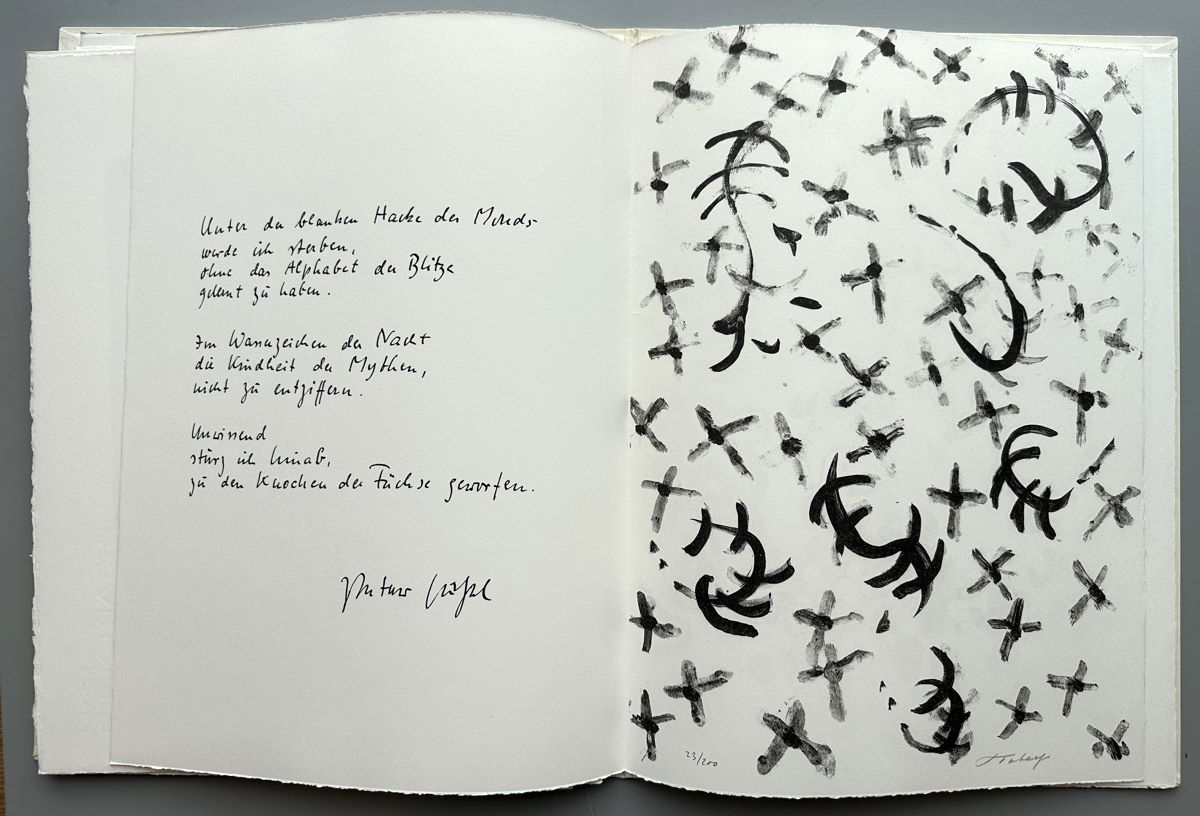 Unter der blanken Hacke des Monds
werde ich sterben,
ohne das Alphabet der Blitze
gelernt zu haben.
Im Wasserzeichen der Nacht
die Kindheit der Mythen,
nicht zu entziffern.
Unwissend
stürz ich hinab,
zu den Knochen der Füchse geworfen.
Peter Huchel
23/200
Tobey